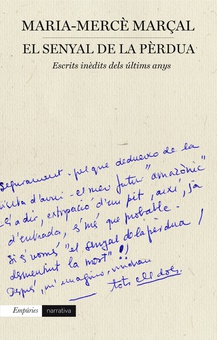 MARIA-MERCÈ MARÇAL
EL SENYAL DE LA PÈRDUA
Escrits inèdits dels últims anys
Segurament, pel que dedueixo de la
visita d'avui - el meu futur "amazònic"
és a dir, extirpació d'un pit, així, ja
d'entrada, s'més que probable.
Si només "el senyal de la pèrdua"
desmentint la mort"!)
Després, m'imagino, vindran
tots els dos.
Empúries
narrativa